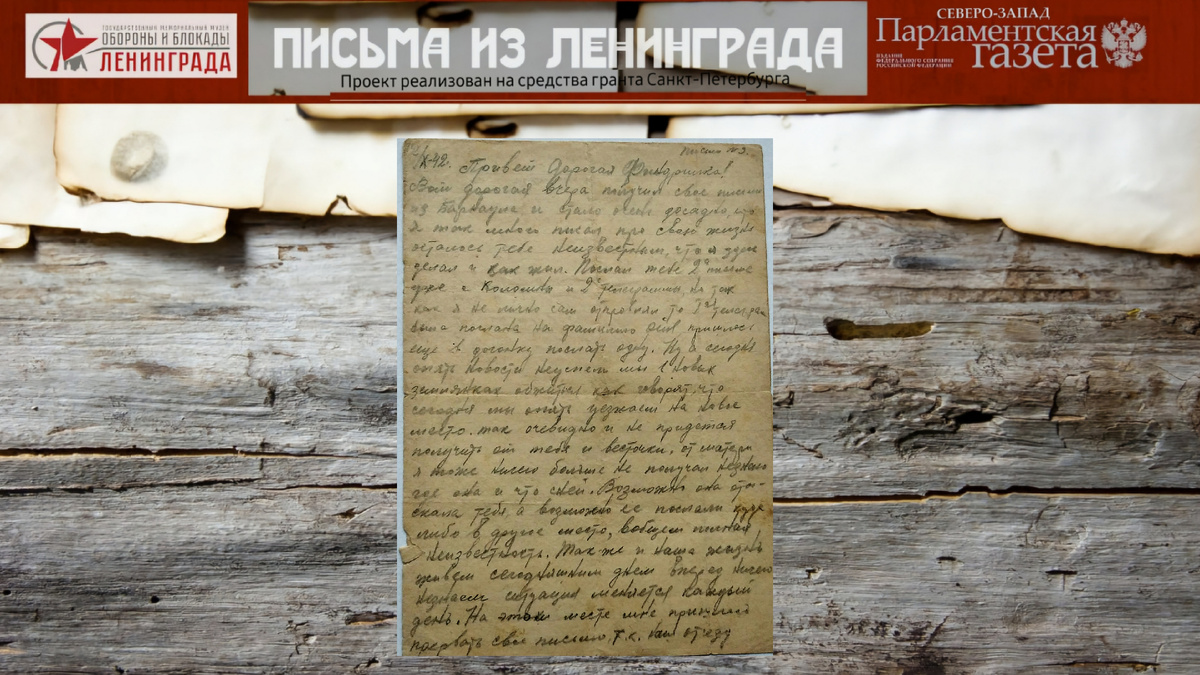 ГОСУДАРСТВЕННЫЙ МЕМОРИАЛЬНЫЙ МУЗЕЙ
ОБОРОНЫ И БЛОКАДЫ
ЛЕНИНГРАДА
ПИСЬМА ИЗ ЛЕНИНГРАДА
Проект реализован на средства гранта Санкт-Петербурга
СЕВЕРО-ЗАПАД
Парламентская
газета
ИЗДАНИЕ
ФЕДЕРАЛЬНОГО СОБРАНИЯ
РОССИЙСКОЙ ФЕДЕРАЦИИ
письмо №3
X-42. Привет Дорогая
дорогая вчера получил свое письмо
из Барнаула и стало очень досадно, что
я так много писал про свою жизнь
осталось тебе неизвестным, что я здесь
делал и как жил. Послал тебе 2 письма
уже с Коломны и 2 телеграммы, но так
как я не лично сам отправлял то 1 телеграм
была послана на фамилию пришлось
еще в догонку послать одну. Ну а сегодня
опять новости неуспели мы в новых
землянках обжиться как говорят, что
сегодня мы опять уезжаем на новое
место. так очевидно и не придется
получить от тебя и весточки, от матери
я тоже ничего больше не получал незнаю
где она и что с ней. Возможно она оты-
скала тебя а возможно ее послали куда
либо в другое место, вобщем полная
неизвестность. Так же и наша жизнь
живем сегодняшним днем вперед ничего
незнаем ситуация меняется каждый
день. На этом месте мне пришлось
прервать свое письмо, т.к. на отъезду